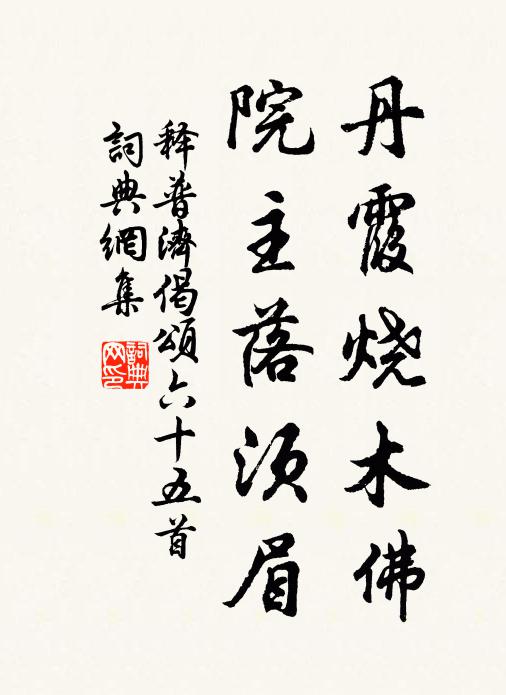 丹霞烧木佛
院主落须眉
释普濟偈頌六十五首
詞典網集
詞典網印